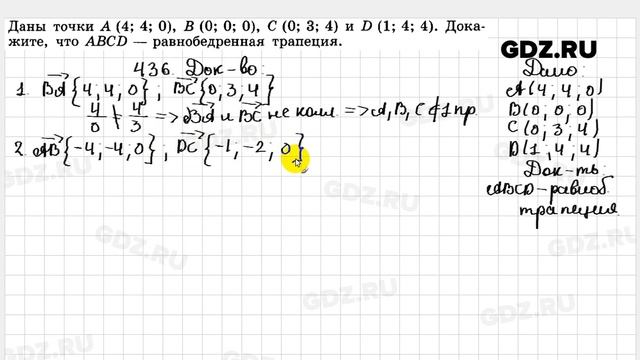 Даны точки A (4; 4; 0), B (0; 0; 0), C (0; 3; 4) и D (1; 4; 4). Дока-
жите, что ABCD — равнобедренная трапеция.
GDZ.RU
436. Док-во:
1. BA{4,4,0}; BC{0,3,4}
4/0 ≠ 4/3 => BA и BC не колл. => A,B,C ∉ 1 пр.
2. AB{-4,-4,0}; DC{-1,-2,0}
Дано:
A(4,4,0)
B(0,0,0)
C(0,3,4)
D(1,4,4)
Док-ть:
ABCD-равноб.
трапеция
GDZ.RU
GDZ.RU
GDZ.RU
GDZ.RU
GDZ.RU